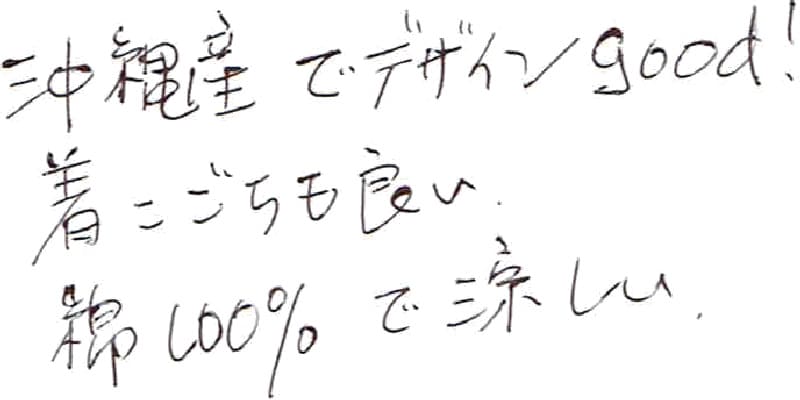 沖縄産でデザインgood!
着ごごちも良い.
綿100%で涼しい.